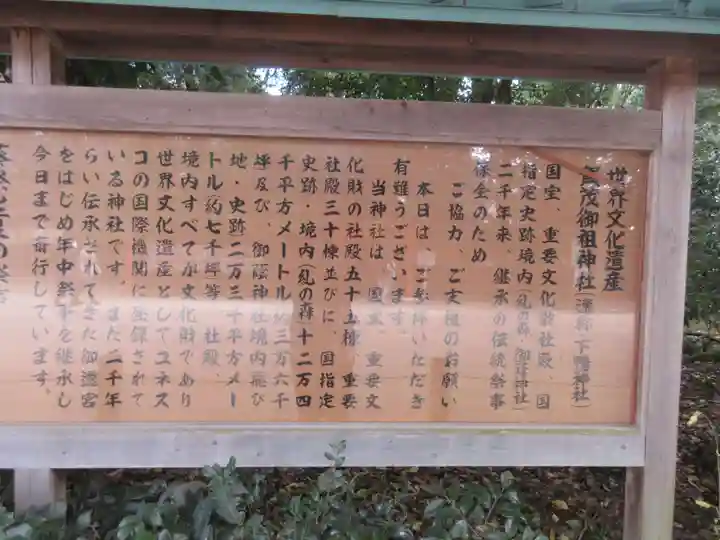 世界文化遺産
賀茂御祖神社(通称 下鴨神社)
国宝、重要文化財社殿、国
指定史跡境内(糺の森、御蔭神社)
二千年来、継承の伝統祭事
保全のため
ご協力、ご支援のお願い
本日は、ご参拝いただき
有難うございます。
当神社は、国宝、重要文
化財の社殿五十五棟、重要
社殿三十棟並びに、国指定
史跡・境内(糺の森)十二万四
千平方メートル約三万六千
坪及び、御蔭神社境内飛び
地・史跡二万三千平方メー
トル約七千坪等、社殿、
境内すべてが文化財であり
世界文化遺産としてユネス
コの国際機関に登録されて
いる神社です。また二千年
らい伝承されてきた御遷宮
をはじめ年中祭事を継承し
今日まで斎行しています。